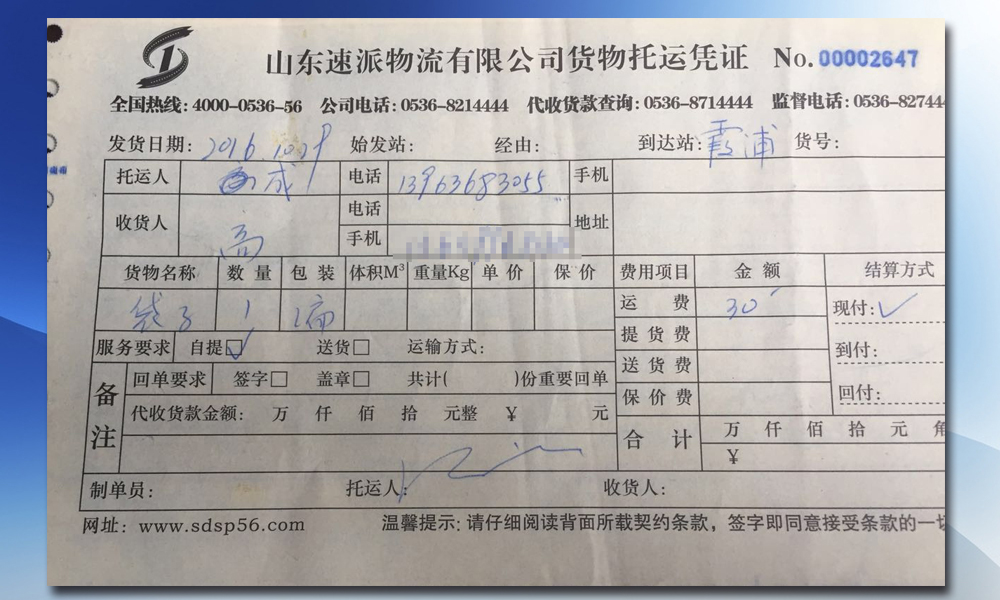 山东速派物流有限公司货物托运凭证 No.00002647
全国热线:4000-0536-56 公司电话:0536-8214444 代收货款查询:0536-8714444 监督电话:0536-82744
发货日期: 2016.10.29 始发站: 经由: 到达站: 霞浦 货号:
托运人 成 电话 13963683055 手机
收货人 高 电话 地址
手机
货物名称 数量 包装 体积M³ 重量Kg 单价 保价 费用项目 金额 结算方式
袋子 1 运费 30 现付:✓
服务要求 自提☑ 送货□ 运输方式: 提货费 到付:
备注 回单要求 签字□ 盖章□ 共计( )份重要回单 送货费
代收货款金额: 万 仟 佰 拾 元整 ¥ 元 保价费 回付:
合计 万 仟 佰 拾 元 角
¥
制单员: 托运人: 收货人:
网址: www.sdsp56.com 温馨提示:请仔细阅读背面所载契约条款,签字即同意接受条款的一切